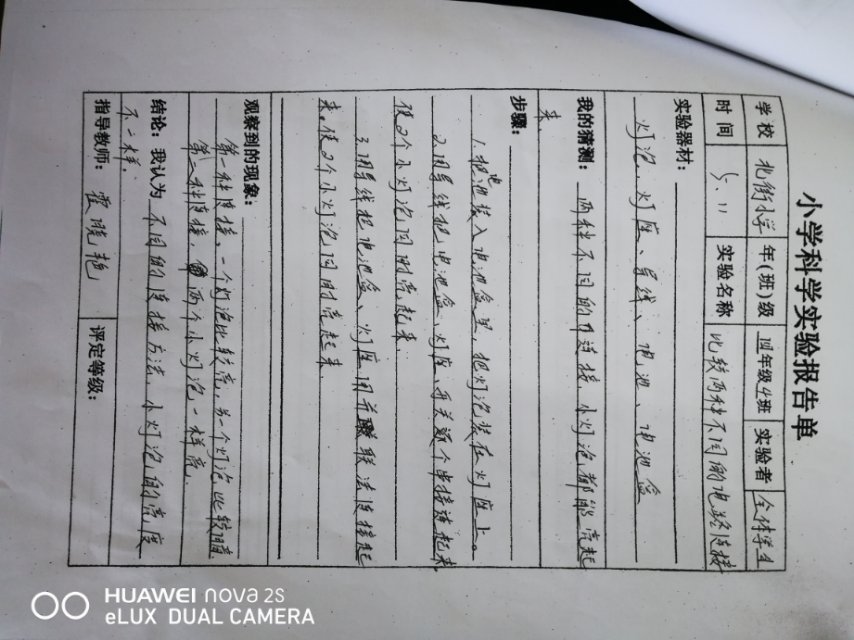 小学科学实验报告单
学校 北街小学 年(班)级 四年级4班 实验者 全体学生
时间 5.11 实验名称 比较两种不同的电路连接
实验器材:
灯泡、灯座、导线、电池、电池盒
我的猜测: 两种不同的连接,小灯泡都能亮起
来。
步骤:
1.把电池装入电池盒里,把灯泡装在灯座上。
2.用导线把电池盒、灯座、开关逐个串接连起来,
使2个小灯泡同时亮起来.
3.用导线把电池盒、灯座用并联法连接起
来。使2个小灯泡同时亮起来
观察到的现象:
第一种连接、一个灯泡比较亮,另一个灯泡比较暗.
第二种连接,两个小灯泡一样亮.
结论: 我认为 不同的连接方法,小灯泡的亮度
不一样.
指导教师: 霍晓艳 评定等级:
HUAWEI nova 2S
eLUX DUAL CAMERA